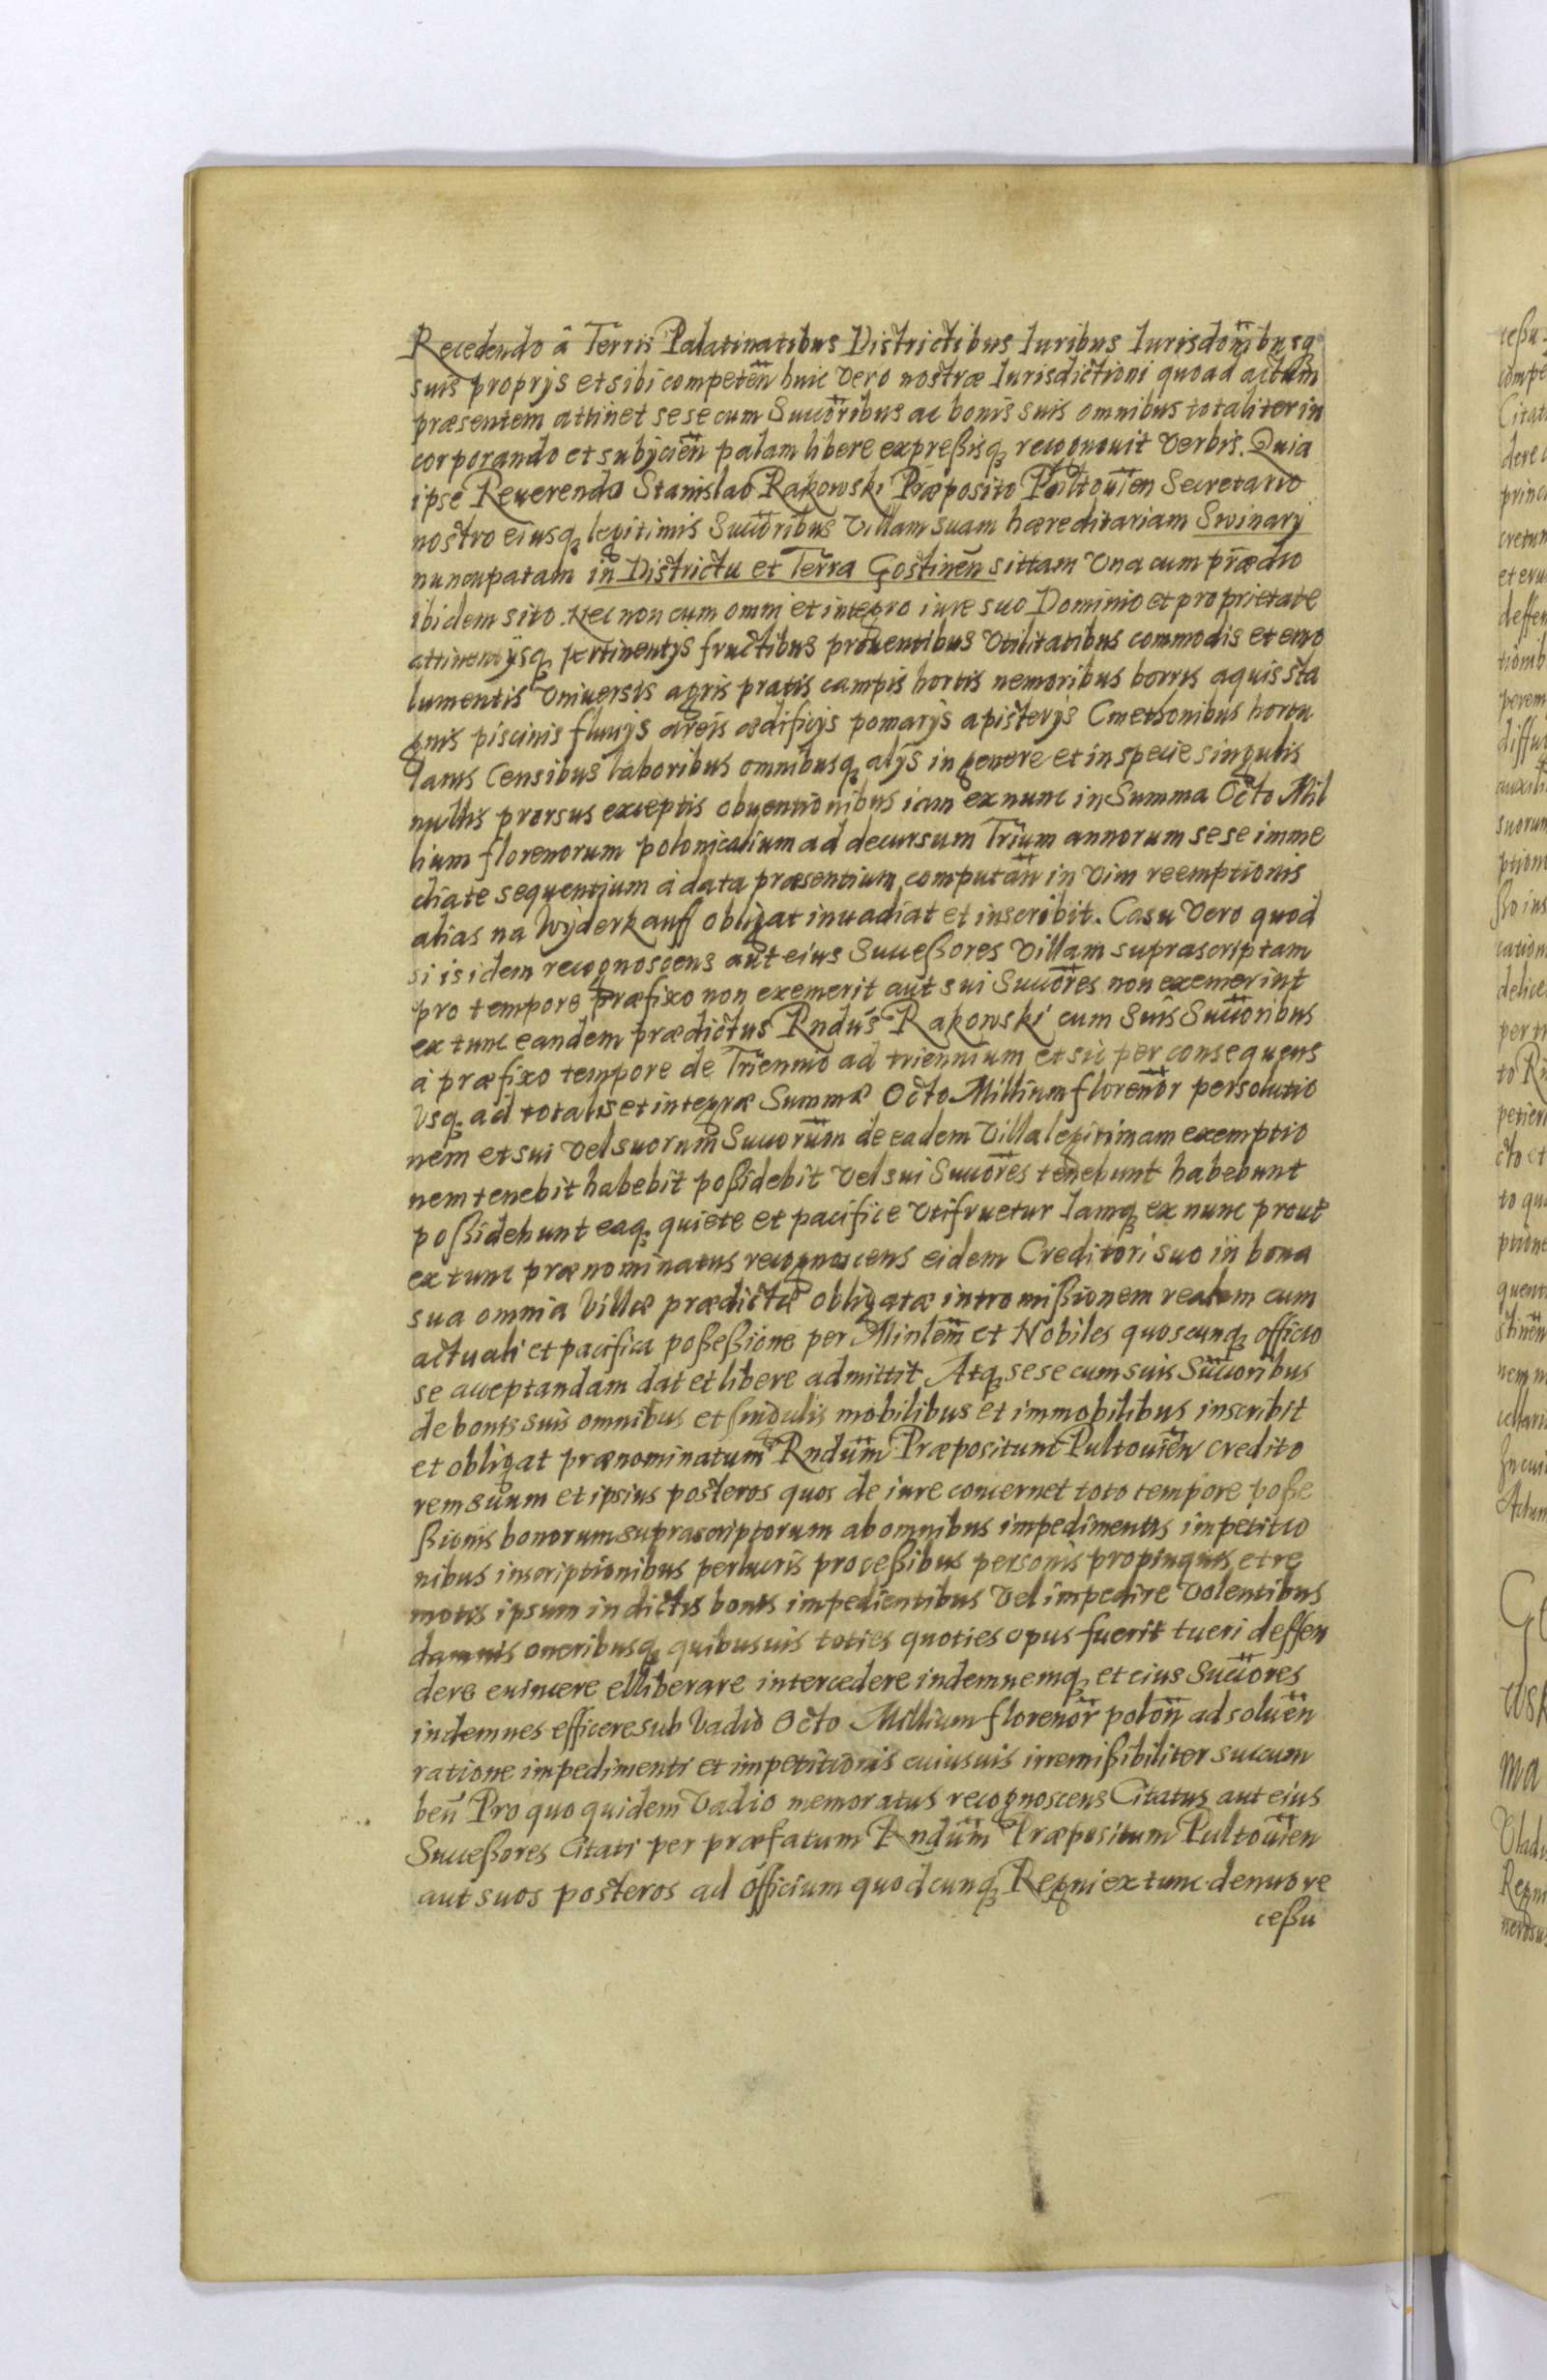 Recedendo â Terris Palatinatibus Districtibus Iuribus Iurisdonibusq
suis proprijs et sibi competen̄ huic vero nostræ Iurisdictioni quoad actum
præsentem attinet sese cum Succoribus ac bonis suis omnibus totaliter in
corporando et subÿcien̄ palam libere expreßisq recognouit verbis. Quia
ipse Reuerendo Stanislao Rakowski Præposito Pultouien Secretario
nostro eiusq legitimis Succoribus villam suam hæreditariam Swinary
nuncupatam in Districtu et Terra Gostinen̄ sittam vna cum prædio
ibidem sito. Nec non cum omni et integro iure suo Dominio et proprietate
attinentÿsq pertinentÿs fructibus prouentibus vtilitatibus commodis et emo
lumentis vniuersis agris pratis campis hortis nemoribus borris aquis sta
gnis piscinis fluuÿs areis ædificÿs pomarÿs apisterÿs Cmethonibus hortu
lanis Censibus laboribus omnibusq alÿs in genere et in specie singulis
nullis prorsus exceptis obuentionibus iam ex nunc in Summa Octo Mil
lium florenorum polonicalium ad decursum Trium annorum sese imme
diate sequentium à data præsentium computan̄ in vim reemptionis
alias na Wyderkauff obligat inuadiat et inscribit. Casu vero quod
si is idem recognoscens aut eius Succeßores villam suprascriptam
pro tempore præfixo non exemerit aut sui Succores non exemerint
ex tunc eandem prædictus Rndus Rakowski cum suis Succoribus
à præfixo tempore de Triennio ad triennium et sic per consequens
vsq ad totalis et integræ Summæ Octo Millium florenor persolutio
nem et sui vel suorum Succorum de eadem villa legitimam exemptio
nem tenebit habebit poßidebit vel sui Succores tenebunt habebunt
poßidebunt eaq quiete et pacifice vtifruetur Iamq ex nunc prout
ex tunc prænominatus recognoscens eidem Creditori suo in bona
sua omnia villæ prædictæ obligatæ intromißionem realem cum
actuali et pacifica poßeßione per Minlem et Nobiles quoscunq officio
se acceptandam dat et libere admittit Atq sese cum suis Succoribus
de bonis suis omnibus et singulis mobilibus et immobilibus inscribit
et obligat prænominatum Rndum Præpositum Pultouien credito
rem suum et ipsius posteros quos de iure concernet toto tempore poße
ßionis bonorum suprascriptorum ab omnibus impedimentis impetitio
nibus inscriptionibus perlucris proceßibus personis propinquis et re
motis ipsum in dictis bonis impedientibus vel impedire volentibus
damnis oneribusq quibusuis toties quoties opus fuerit tueri deffen
dere euincere elliberare intercedere indemnemq et eius Succores
indemnes efficere sub vadio Octo Millium florenor polon̄ ad soluen̄
ratione impedimenti et impetitionis cuiusuis irremißibiliter succum
ben̄ Pro quo quidem vadio memoratus recognoscens Citatus aut eius
Succeßores Citati per præfatum Rndum Præpositum Pultouien
aut suos posteros ad officium quodcunq Regni ex tunc denuo re
ceßu